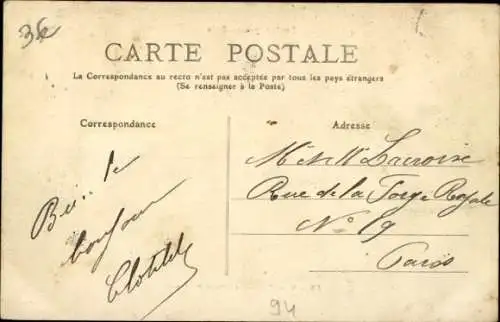 3€
CARTE POSTALE
La Correspondance au recto n'est pas acceptée par tous les pays étrangers
(Se renseigner à la Poste)
Correspondance
le
bonjour
Clotilde
Adresse
Lacroix
Rue de la Forge Royale
N° 19
Paris
94